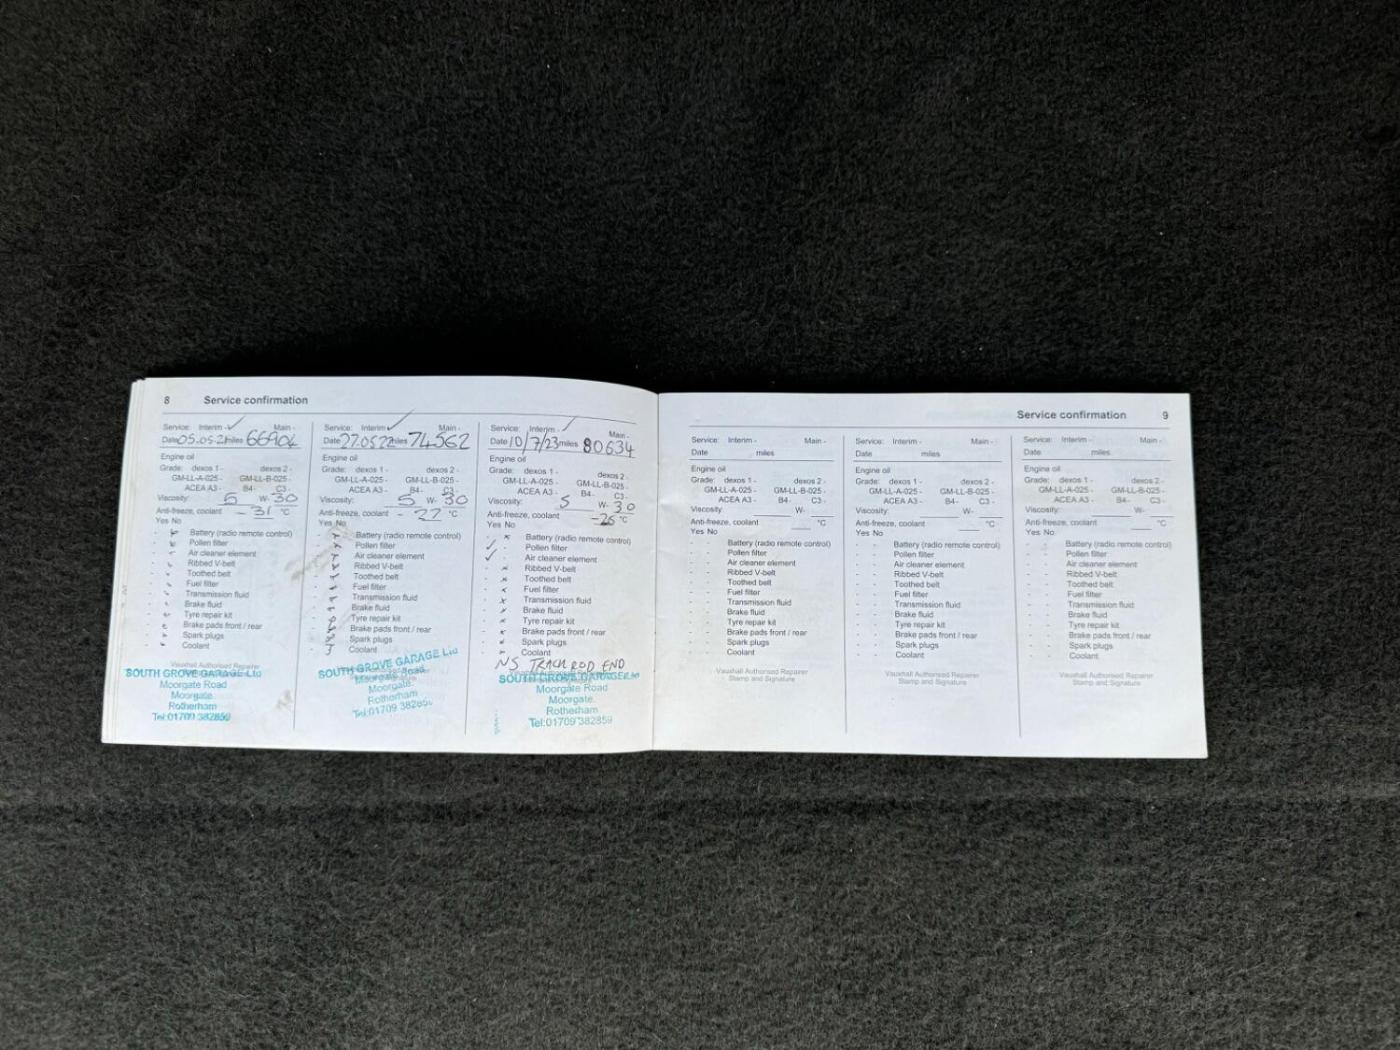 8 Service confirmation
Service: Interim - ✓ Main -
Date 05.05.21 miles 66904
Engine oil
Grade: dexos 1 - dexos 2 -
GM-LL-A-025 - GM-LL-B-025 -
ACEA A3 - B4 - C3 -
Viscosity: 5 W- 30
Anti-freeze, coolant -31 °C
Yes No
Battery (radio remote control)
Pollen filter
Air cleaner element
Ribbed V-belt
Toothed belt
Fuel filter
Transmission fluid
Brake fluid
Tyre repair kit
Brake pads front / rear
Spark plugs
Coolant
Vauxhall Authorised Repairer
SOUTH GROVE GARAGE Ltd
Moorgate Road
Moorgate
Rotherham
Tel:01709 382859
Service: Interim ✓ Main -
Date 27.05.22 miles 74562
Engine oil
Grade: dexos 1 - dexos 2 -
GM-LL-A-025 - GM-LL-B-025 -
ACEA A3 - B4 - C3 -
Viscosity: 5 W- 30
Anti-freeze, coolant -27 °C
Yes No
Battery (radio remote control)
Pollen filter
Air cleaner element
Ribbed V-belt
Toothed belt
Fuel filter
Transmission fluid
Brake fluid
Tyre repair kit
Brake pads front / rear
Spark plugs
Coolant
SOUTH GROVE GARAGE Ltd
Moorgate Road
Moorgate
Rotherham
Tel:01709 382859
Service: Interim - ✓ Main -
Date 10/7/23 miles 80634
Engine oil
Grade: dexos 1 - dexos 2 -
GM-LL-A-025 - GM-LL-B-025 -
ACEA A3 - B4 - C3 -
Viscosity: 5 W- 30
Anti-freeze, coolant -26 °C
Yes No
Battery (radio remote control)
Pollen filter
Air cleaner element
Ribbed V-belt
Toothed belt
Fuel filter
Transmission fluid
Brake fluid
Tyre repair kit
Brake pads front / rear
Spark plugs
Coolant
NS TRACK ROD END
SOUTH GROVE GARAGE Ltd
Moorgate Road
Moorgate
Rotherham
Tel:01709 382859
Service confirmation 9
Service: Interim - Main -
Date miles
Engine oil
Grade: dexos 1 - dexos 2 -
GM-LL-A-025 - GM-LL-B-025 -
ACEA A3 - B4 - C3 -
Viscosity: W-
Anti-freeze, coolant °C
Yes No
Battery (radio remote control)
Pollen filter
Air cleaner element
Ribbed V-belt
Toothed belt
Fuel filter
Transmission fluid
Brake fluid
Tyre repair kit
Brake pads front / rear
Spark plugs
Coolant
Vauxhall Authorised Repairer
Stamp and Signature
Service: Interim - Main -
Date miles
Engine oil
Grade: dexos 1 - dexos 2 -
GM-LL-A-025 - GM-LL-B-025 -
ACEA A3 - B4 - C3 -
Viscosity: W-
Anti-freeze, coolant °C
Yes No
Battery (radio remote control)
Pollen filter
Air cleaner element
Ribbed V-belt
Toothed belt
Fuel filter
Transmission fluid
Brake fluid
Tyre repair kit
Brake pads front / rear
Spark plugs
Coolant
Vauxhall Authorised Repairer
Stamp and Signature
Service: Interim - Main -
Date miles
Engine oil
Grade: dexos 1 - dexos 2 -
GM-LL-A-025 - GM-LL-B-025 -
ACEA A3 - B4 - C3 -
Viscosity: W-
Anti-freeze, coolant °C
Yes No
Battery (radio remote control)
Pollen filter
Air cleaner element
Ribbed V-belt
Toothed belt
Fuel filter
Transmission fluid
Brake fluid
Tyre repair kit
Brake pads front / rear
Spark plugs
Coolant
Vauxhall Authorised Repairer
Stamp and Signature